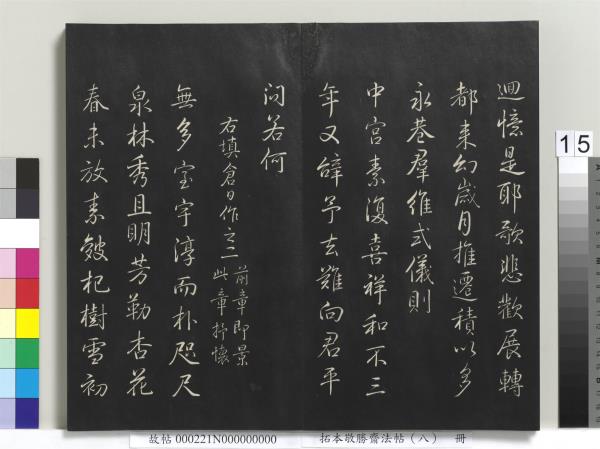 迴憶是耶歌悲歡展轉
都来幻歲月推遷積以多
永巷羣維式儀則
中宮素復喜祥和不三
年又辭予去難向君平
问若何
右填倉日作之一 前章即景
此章抒懷
無多室宇淳而朴咫尺
泉林秀且明芳勒杏花
春未放素皴杞樹雪初
15
故帖 000221N000000000
拓本敬勝齋法帖（八） 冊